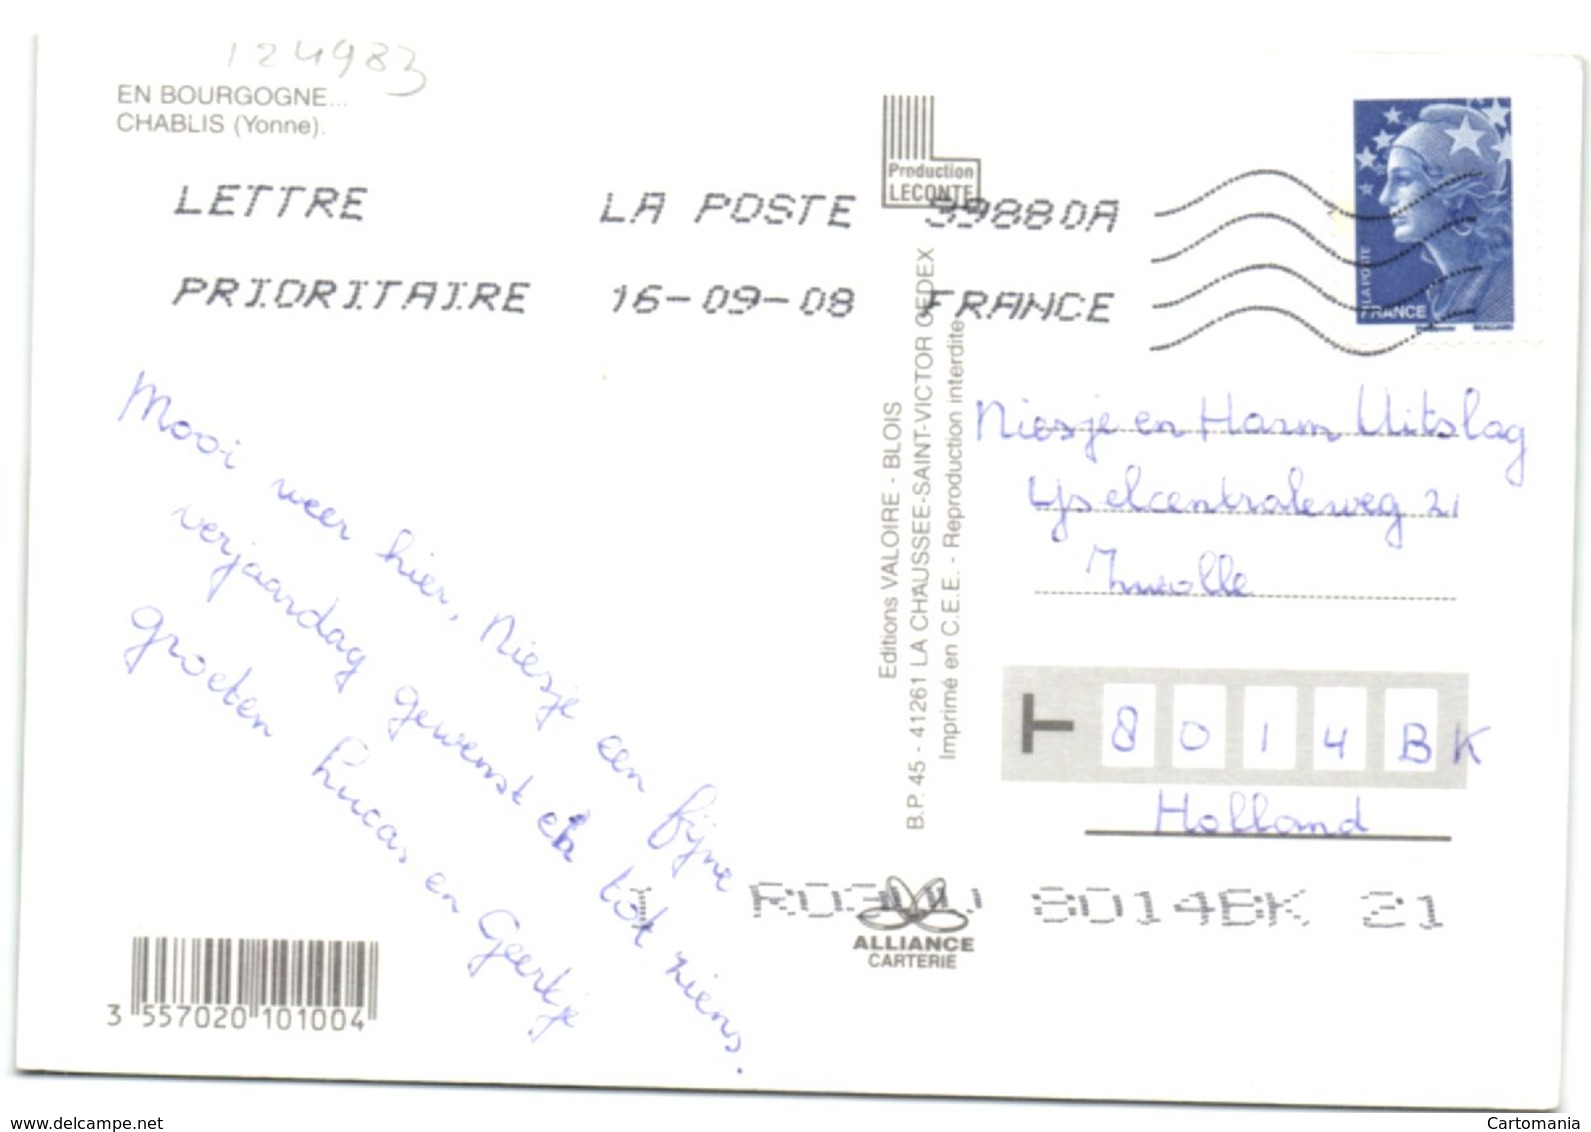 124983
EN BOURGOGNE...
CHABLIS (Yonne).
Production
LECONTE
LETTRE LA POSTE 39880A
PRIORITAIRE 16-09-08 FRANCE
LA POSTE
FRANCE
BEAUJARD
Mooi weer hier, Niesje een fijne
verjaardag gewenst en tot ziens.
Groeten Lucas en Geertje
Editions VALOIRE - BLOIS
B.P. 45 - 41261 LA CHAUSSEE-SAINT-VICTOR CEDEX
Imprimé en C.E.E. - Reproduction interdite
Niesje en Harm Uitslag
IJselcentraleweg 21
Zwolle
T 8014BK
Holland
8014BK 21
ALLIANCE
CARTERIE
3 557020 101004
www.delcampe.net
Cartomania